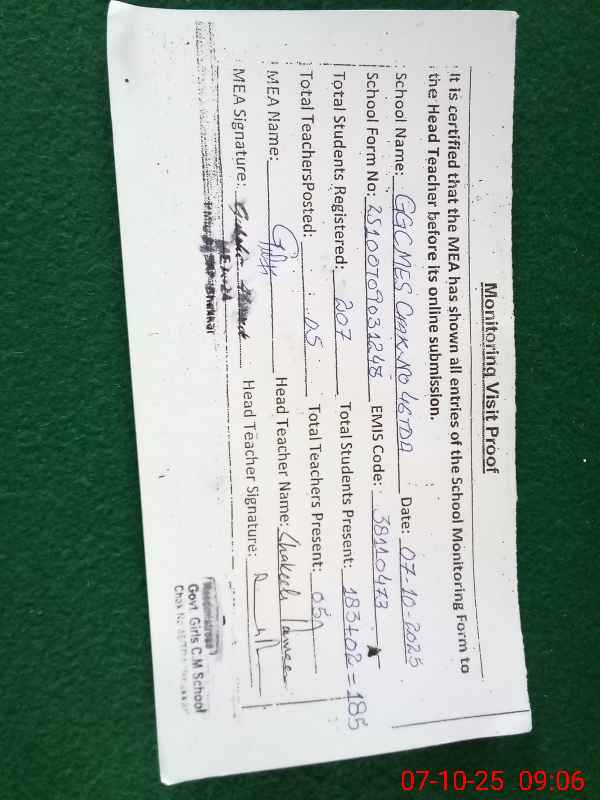 Monitoring Visit Proof
It is certified that the MEA has shown all entries of the School Monitoring Form to
the Head Teacher before its online submission.
School Name: GGCMES Chak No 46 TDA Date: 07-10-2025
School Form No: 25100709031248 EMIS Code: 38110473
Total Students Registered: 207 Total Students Present: 183+02=185
Total TeachersPosted: 05 Total Teachers Present: 05
MEA Name: Head Teacher Name: Shakeela
MEA Signature: Head Teacher Signature:
Bhakkar
Govt Girls C.M School
Chak No 46/TDA Bhakkar
07-10-25 09:06